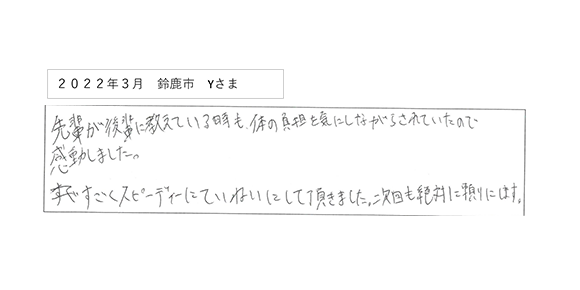 2022年3月 鈴鹿市 Yさま
先輩が後輩に教えている時も、体の負担を気にしながらされていたので
感動しました。
すごくスピーディーにていねいにして頂きました。次回も絶対に頼り